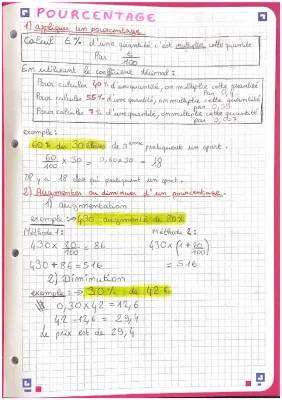 POURCENTAGE
1) appliquer un pourcentage
Calcul t% d'une quantité c'est multiplier cette quantité
Par t/100
En utilisant le coefficient décimal:
Pour calculer 40% d'une quantité, on multiplie cette quantité
Par 0,4
Pour calculer 55% d'une quantité, on multiplie cette quantité
par 0,55
Pour calculer 7% d'une quantité, on multiplie cette quantité
par 0,07
exemple:
60% des 30 élèves de 3ème pratiquent un sport.
60/100 x 30 = 0,60x30 = 18
Il y a 18 élèves qui pratiquent un sport.
2) Augmenter ou diminuer d'un pourcentage.
1) augmentation
exemple: → 430 augmenté de 20%
Méthode 1: Méthode 2:
430 x 20/100 = 86 430 x (1 + 20/100)
430 + 86 = 516 = 516
2) Diminution
exemple: ⇒ 30% de 42 €
0,30 x 42 = 12,6
42 - 12,6 = 29,4
Le prix est de 29,4